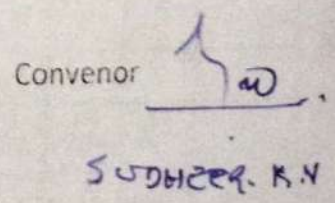 Convenor
SUDHEER. K.V